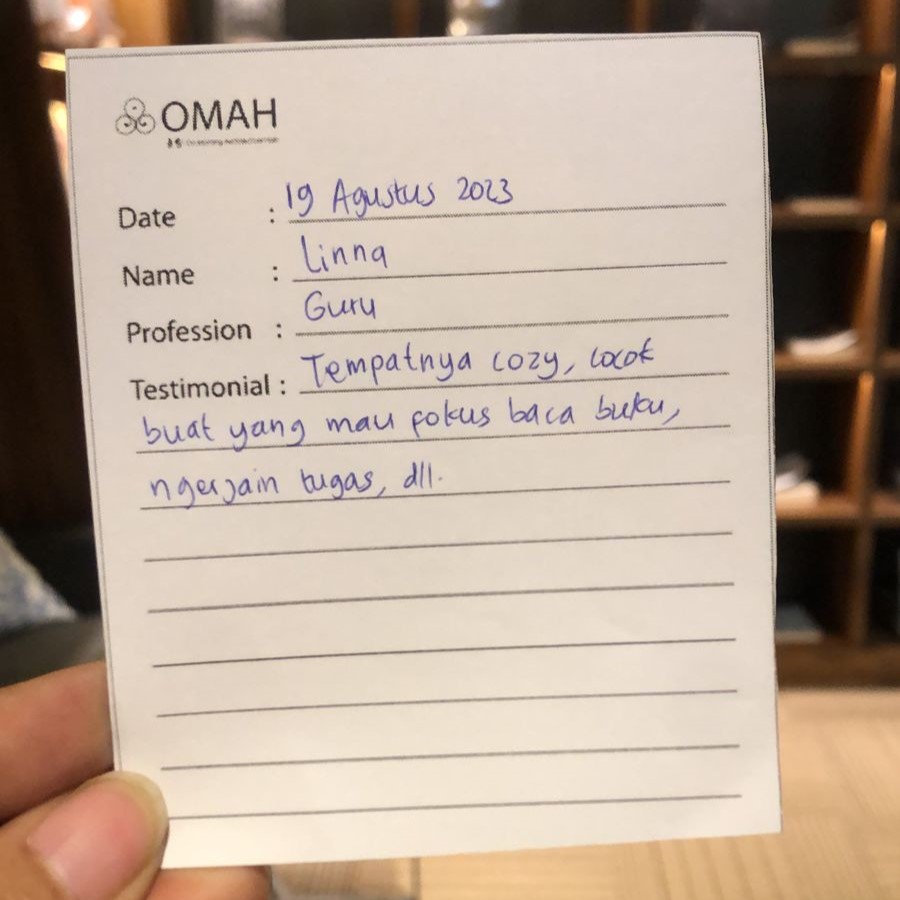 OMAH
Date : 19 Agustus 2023
Name : Linna
Profession : Guru
Testimonial : Tempatnya cozy, cocok
buat yang mau fokus baca buku,
ngerjain tugas, dll.